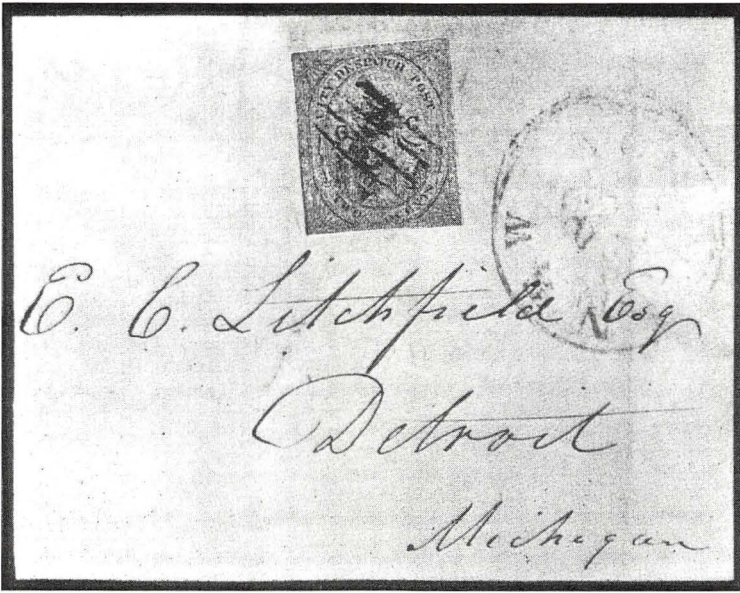 CITY DESPATCH POST
C C
E. C. Litchfield Esq
Detroit
Michigan